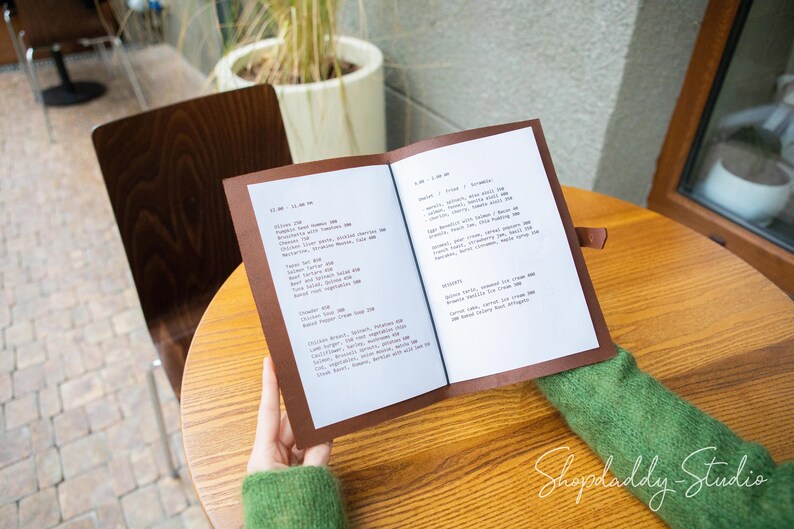 12.00 - 11.00 PM
Olives 250
Pumpkin Seed Hummus 300
Bruschetta with Tomatoes 300
Cheeses 750
Chicken liver paste, pickled cherries 380
Nectarine, Strakino Mousse, Cale 400
Tapas Set 850
Salmon Tartar 450
Beef tartare 450
Beef and Spinach Salad 450
Tuna Salad, Quinoa 450
Baked root vegetables 500
Chowder 450
Chicken Soup 300
Baked Pepper Cream Soup 250
Chicken Breast, Spinach, Potatoes 450
Lamb burger, 550 root vegetable chips
Cauliflower, barley, mushrooms 450
Salmon, Brussel sprouts, potatoes 600
Cod, vegetables, onion mousse, matcha 500
Steak Bavet, Romano, Bernlem with wild leek 550
9.00 - 2.00 AM
Omelet / Fried / Scramble:
- morels, spinach, miso aioli 350
- salmon, fennel, bonita aioli 400
- chorlie, cherry, tomato aioli 350
Eggs Benedict with Salmon / Bacon 40
granola, Peach Jam, Chia Pudding 300
Oatmeal, pear cream, cereal popcorn 300
French toast, strawberry jam, basil 350
Pancakes, burnt cinnamon, maple syrup 350
DESSERTS
Quince terin, seaweed ice cream 400
Brownie Vanilla Ice Cream 300
Carrot cake, carrot ice cream 300
200 Baked Celery Root Affogato
Shopdaddy-Studio